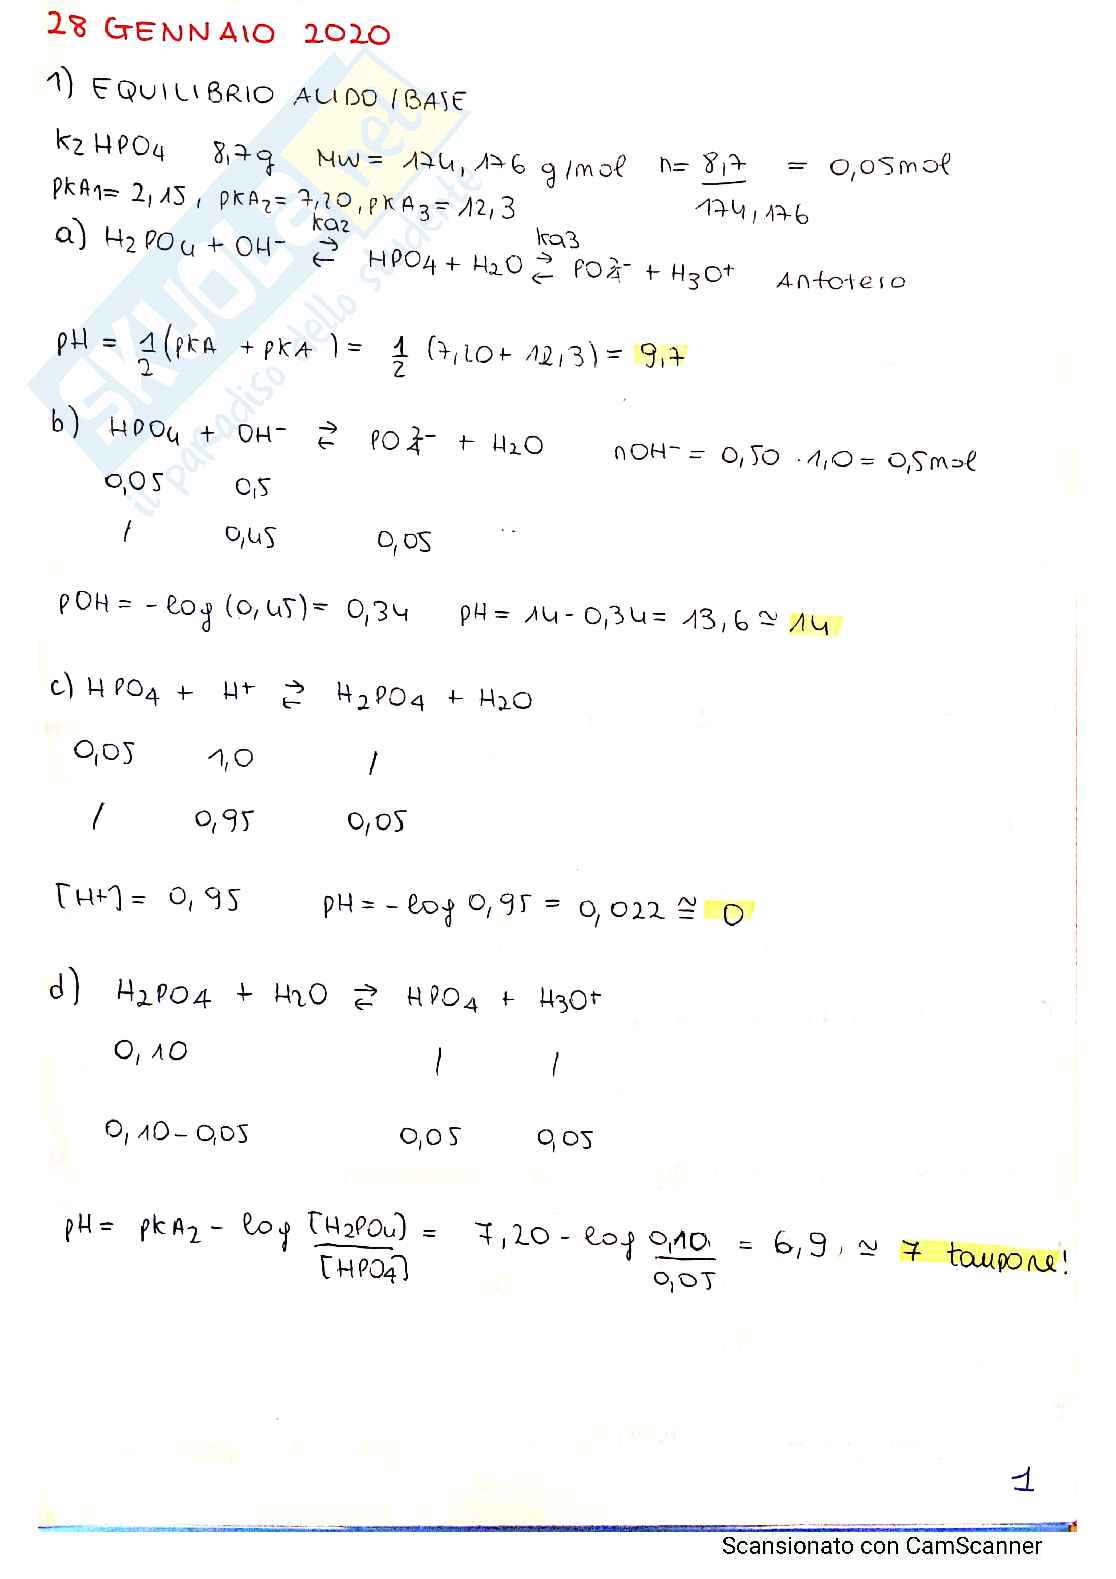 28 GENNAIO 2020
1) EQUILIBRIO ACIDO/BASE
K2HPO4 8,7g MW = 174,176 g/mol n = 8,7/174,176 = 0,05mol
pKA1= 2,15, pKA2= 7,20, pKA3= 12,3
a) H2PO4 + OH- ⇄ ka2 HPO4 + H2O ⇄ ka3 PO4^3- + H3O+ Anfotero
pH = 1/2 (pKA + pKA) = 1/2 (7,20 + 12,3) = 9,7
b) HPO4 + OH- ⇄ PO4^3- + H2O nOH- = 0,50 · 1,0 = 0,5mol
0,05 0,5
/ 0,45 0,05
pOH = -log (0,45) = 0,34 pH = 14 - 0,34 = 13,6 ≃ 14
c) HPO4 + H+ ⇄ H2PO4 + H2O
0,05 1,0 /
/ 0,95 0,05
[H+] = 0,95 pH = -log 0,95 = 0,022 ≅ 0
d) H2PO4 + H2O ⇄ HPO4 + H3O+
0,10 / /
0,10-0,05 0,05 0,05
pH = pKA2 - log [H2PO4]/[HPO4] = 7,20 - log 0,10/0,05 = 6,9 ≃ 7 tampone!
1
SKUOLA.net
il paradiso dello studente
Scansionato con CamScanner